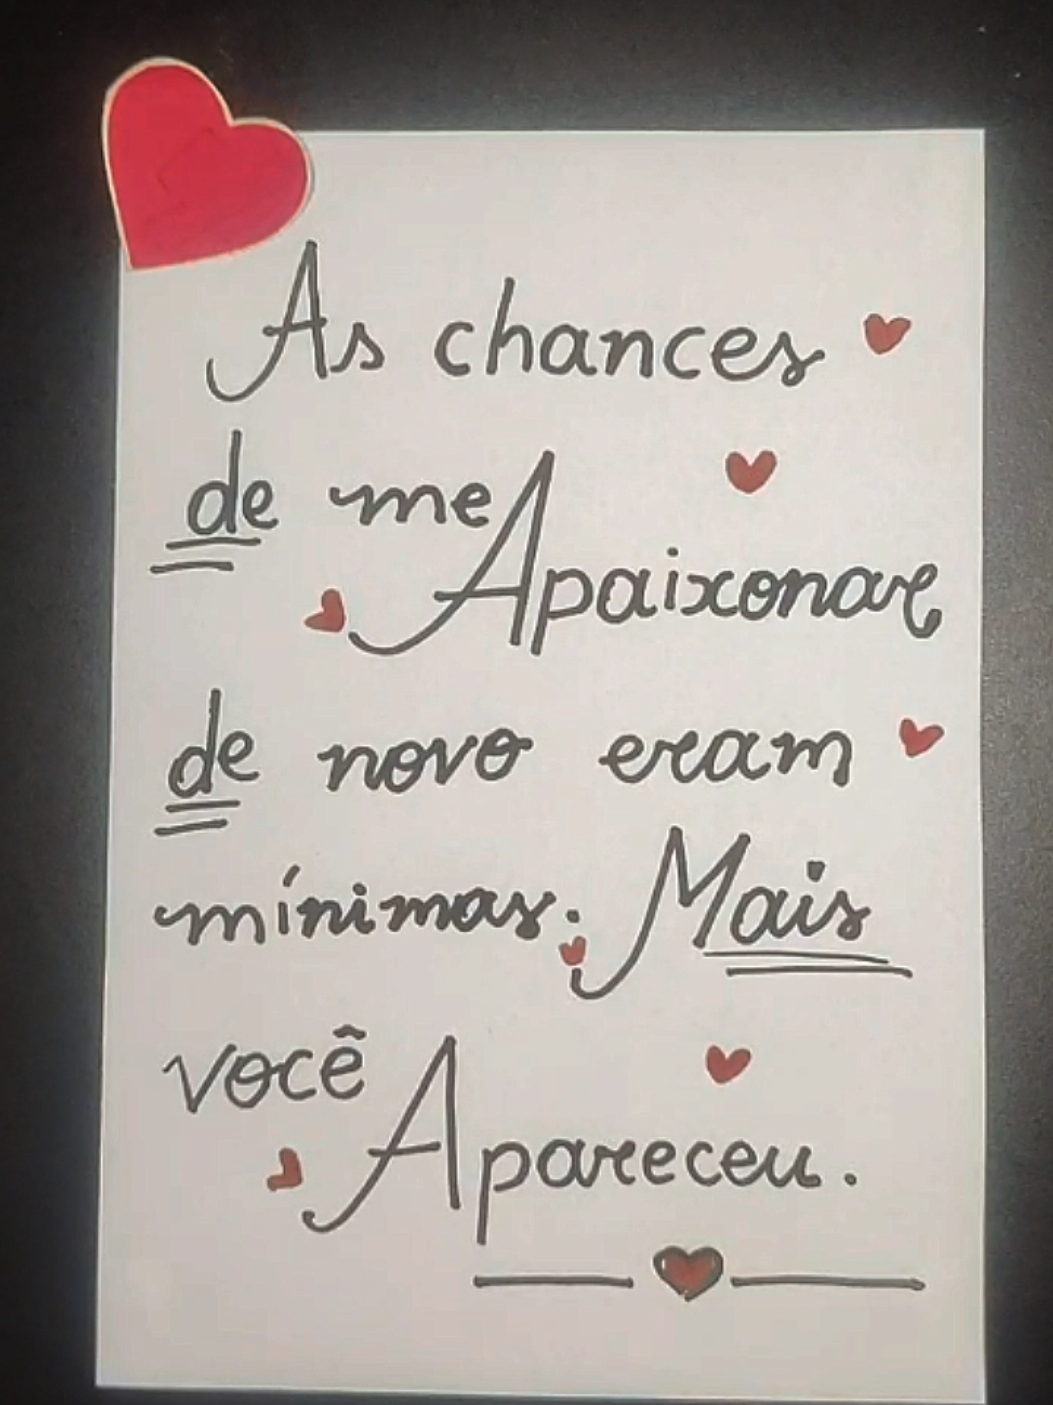 As chances
de me Apaixonar
de novo eram
mínimas. Mais
você Apareceu.